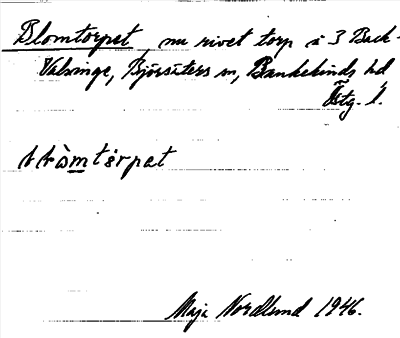 Blomtorpet nu rivet torp å 3 Back-
Valsinge, Björsäters sn, Bankekinds hd
Östg. l.
Maja Nordlund 1946.